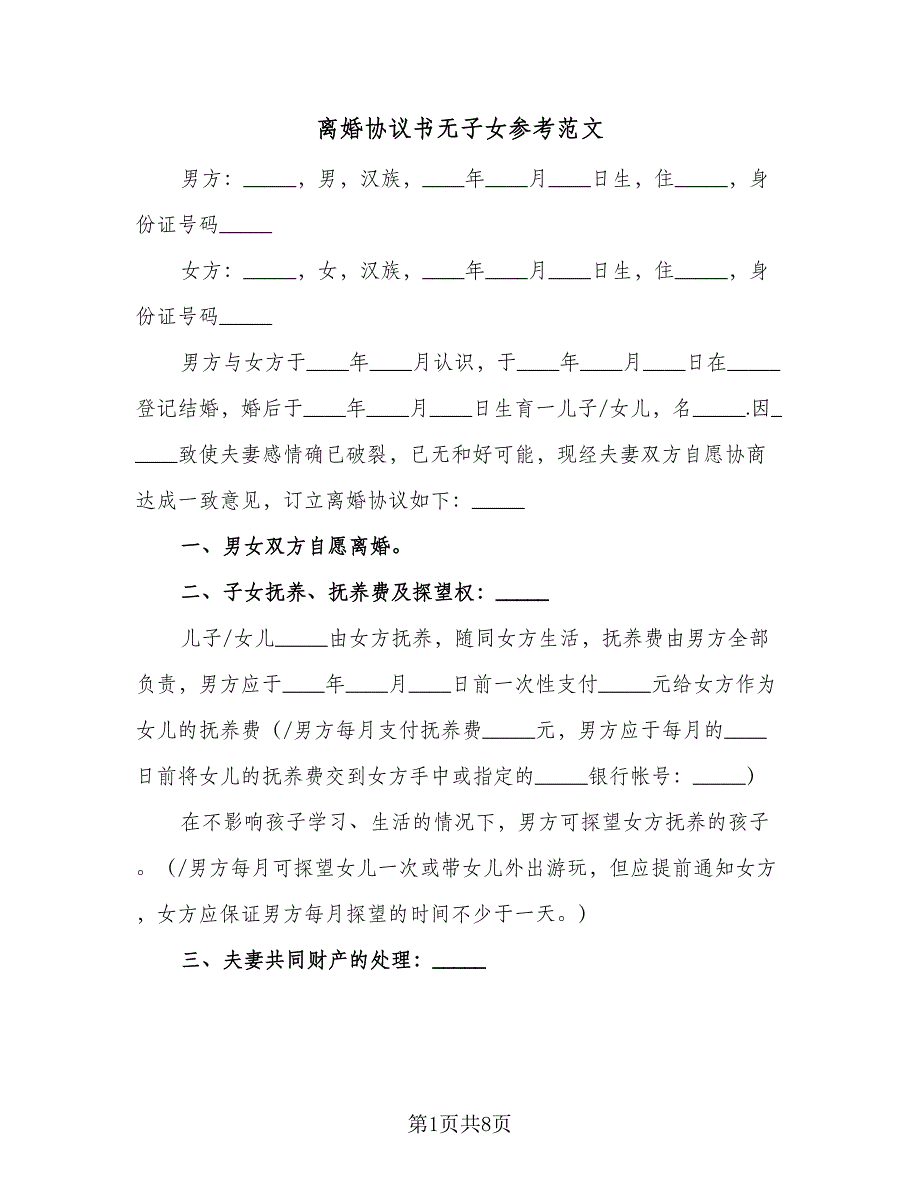 离婚协议书无子女参考范文
男方：_____，男，汉族，____年____月____日生，住_____，身
份证号码_____
女方：_____，女，汉族，____年____月____日生，住_____，身
份证号码_____
男方与女方于____年____月认识，于____年____月____日在_____
登记结婚，婚后于____年____月____日生育一儿子/女儿，名_____.因_
____致使夫妻感情确已破裂，已无和好可能，现经夫妻双方自愿协商
达成一致意见，订立离婚协议如下：_____
一、男女双方自愿离婚。
二、子女抚养、抚养费及探望权：_____
儿子/女儿_____由女方抚养，随同女方生活，抚养费由男方全部
负责，男方应于____年____月____日前一次性支付_____元给女方作为
女儿的抚养费（/男方每月支付抚养费_____元，男方应于每月的____
日前将女儿的抚养费交到女方手中或指定的_____银行帐号：_____）
在不影响孩子学习、生活的情况下，男方可探望女方抚养的孩子
。（/男方每月可探望女儿一次或带女儿外出游玩，但应提前通知女方
，女方应保证男方每月探望的时间不少于一天。）
三、夫妻共同财产的处理：_____
第1页共8页